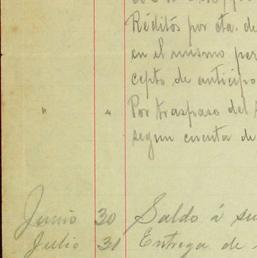 Réditos por cta. de
en el mismo per
cepto de anticipo
" " Por traspaso del
segun cuenta de
Junio 30 Saldo á su
Julio 31 Entrega de